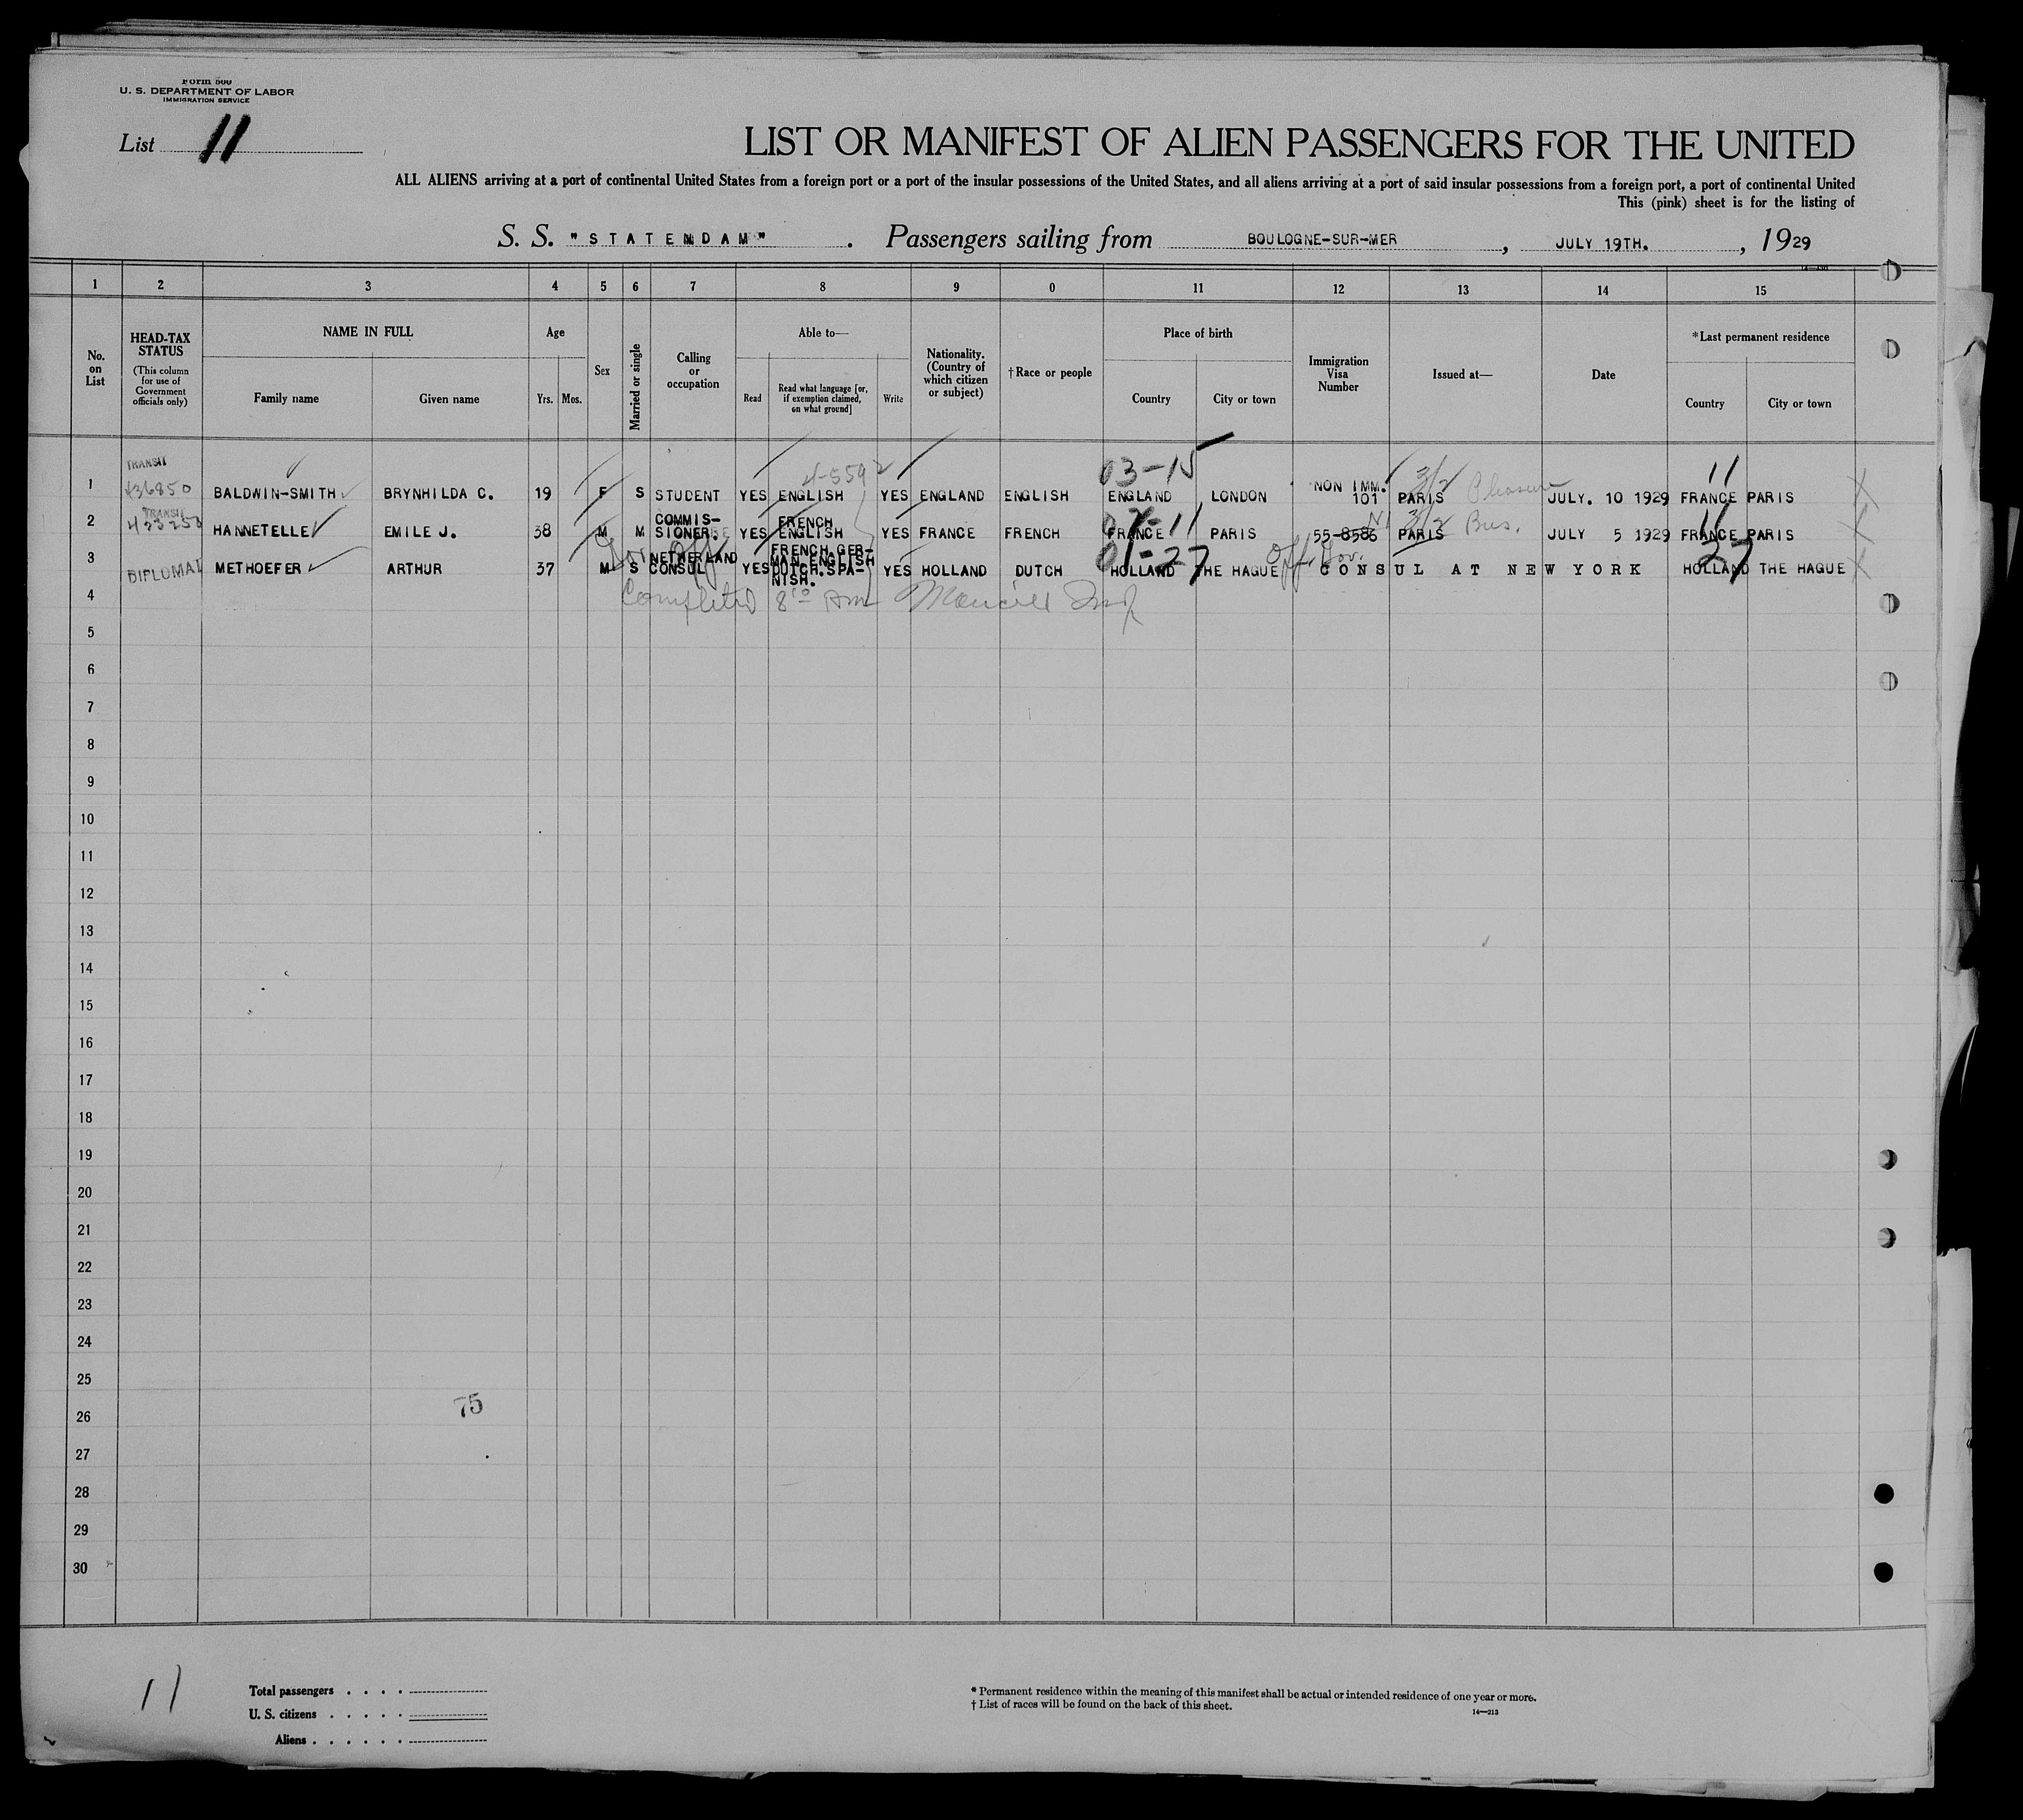 Form 500
U. S. DEPARTMENT OF LABOR
IMMIGRATION SERVICE
List 11
LIST OR MANIFEST OF ALIEN PASSENGERS FOR THE UNITED
ALL ALIENS arriving at a port of continental United States from a foreign port or a port of the insular possessions of the United States, and all aliens arriving at a port of said insular possessions from a foreign port, a port of continental United
This (pink) sheet is for the listing of
S. S. "STATENDAM". Passengers sailing from BOULOGNE-SUR-MER, JULY 19TH., 1929
1 2 3 4 5 6 7 8 9 0 11 12 13 14 15
No. on List
HEAD-TAX STATUS (This column for use of Government officials only)
NAME IN FULL
Family name Given name
Age
Yrs. Mos.
Sex
Married or single
Calling or occupation
Able to—
Read
Read what language [or, if exemption claimed, on what ground]
Write
Nationality. (Country of which citizen or subject)
†Race or people
Place of birth
Country City or town
Immigration Visa Number
Issued at—
Date
*Last permanent residence
Country City or town
03-15 11
TRANSIT
4-5592 3/2 Pleasure
1 436850 BALDWIN-SMITH BRYNHILDA C. 19 F S STUDENT YES ENGLISH YES ENGLAND ENGLISH ENGLAND LONDON NON IMM. 101 PARIS JULY. 10 1929 FRANCE PARIS
TRANSIT
2 HANNETELLE EMILE J. 38 M M COMMIS-SIONER. YES FRENCH ENGLISH YES FRANCE FRENCH FRANCE PARIS 55-8586 PARIS JULY 5 1929 FRANCE PARIS
11 NI 3/2 Bus. 11
3 DIPLOMAT METHOEFER ARTHUR 37 M S NETHERLAND CONSUL YES FRENCH GER-MAN, ENGLISH DUTCH. SPA-NISH. YES HOLLAND DUTCH HOLLAND THE HAGUE CONSUL AT NEW YORK HOLLAND THE HAGUE
01-27 Off. Gov. 27
4 Completed
5
6
7
8
9
10
11
12
13
14
15
16
17
18
19
20
21
22
23
24
25
75
26
27
28
29
30
11
Total passengers
U. S. citizens
Aliens
* Permanent residence within the meaning of this manifest shall be actual or intended residence of one year or more.
† List of races will be found on the back of this sheet.
14—213